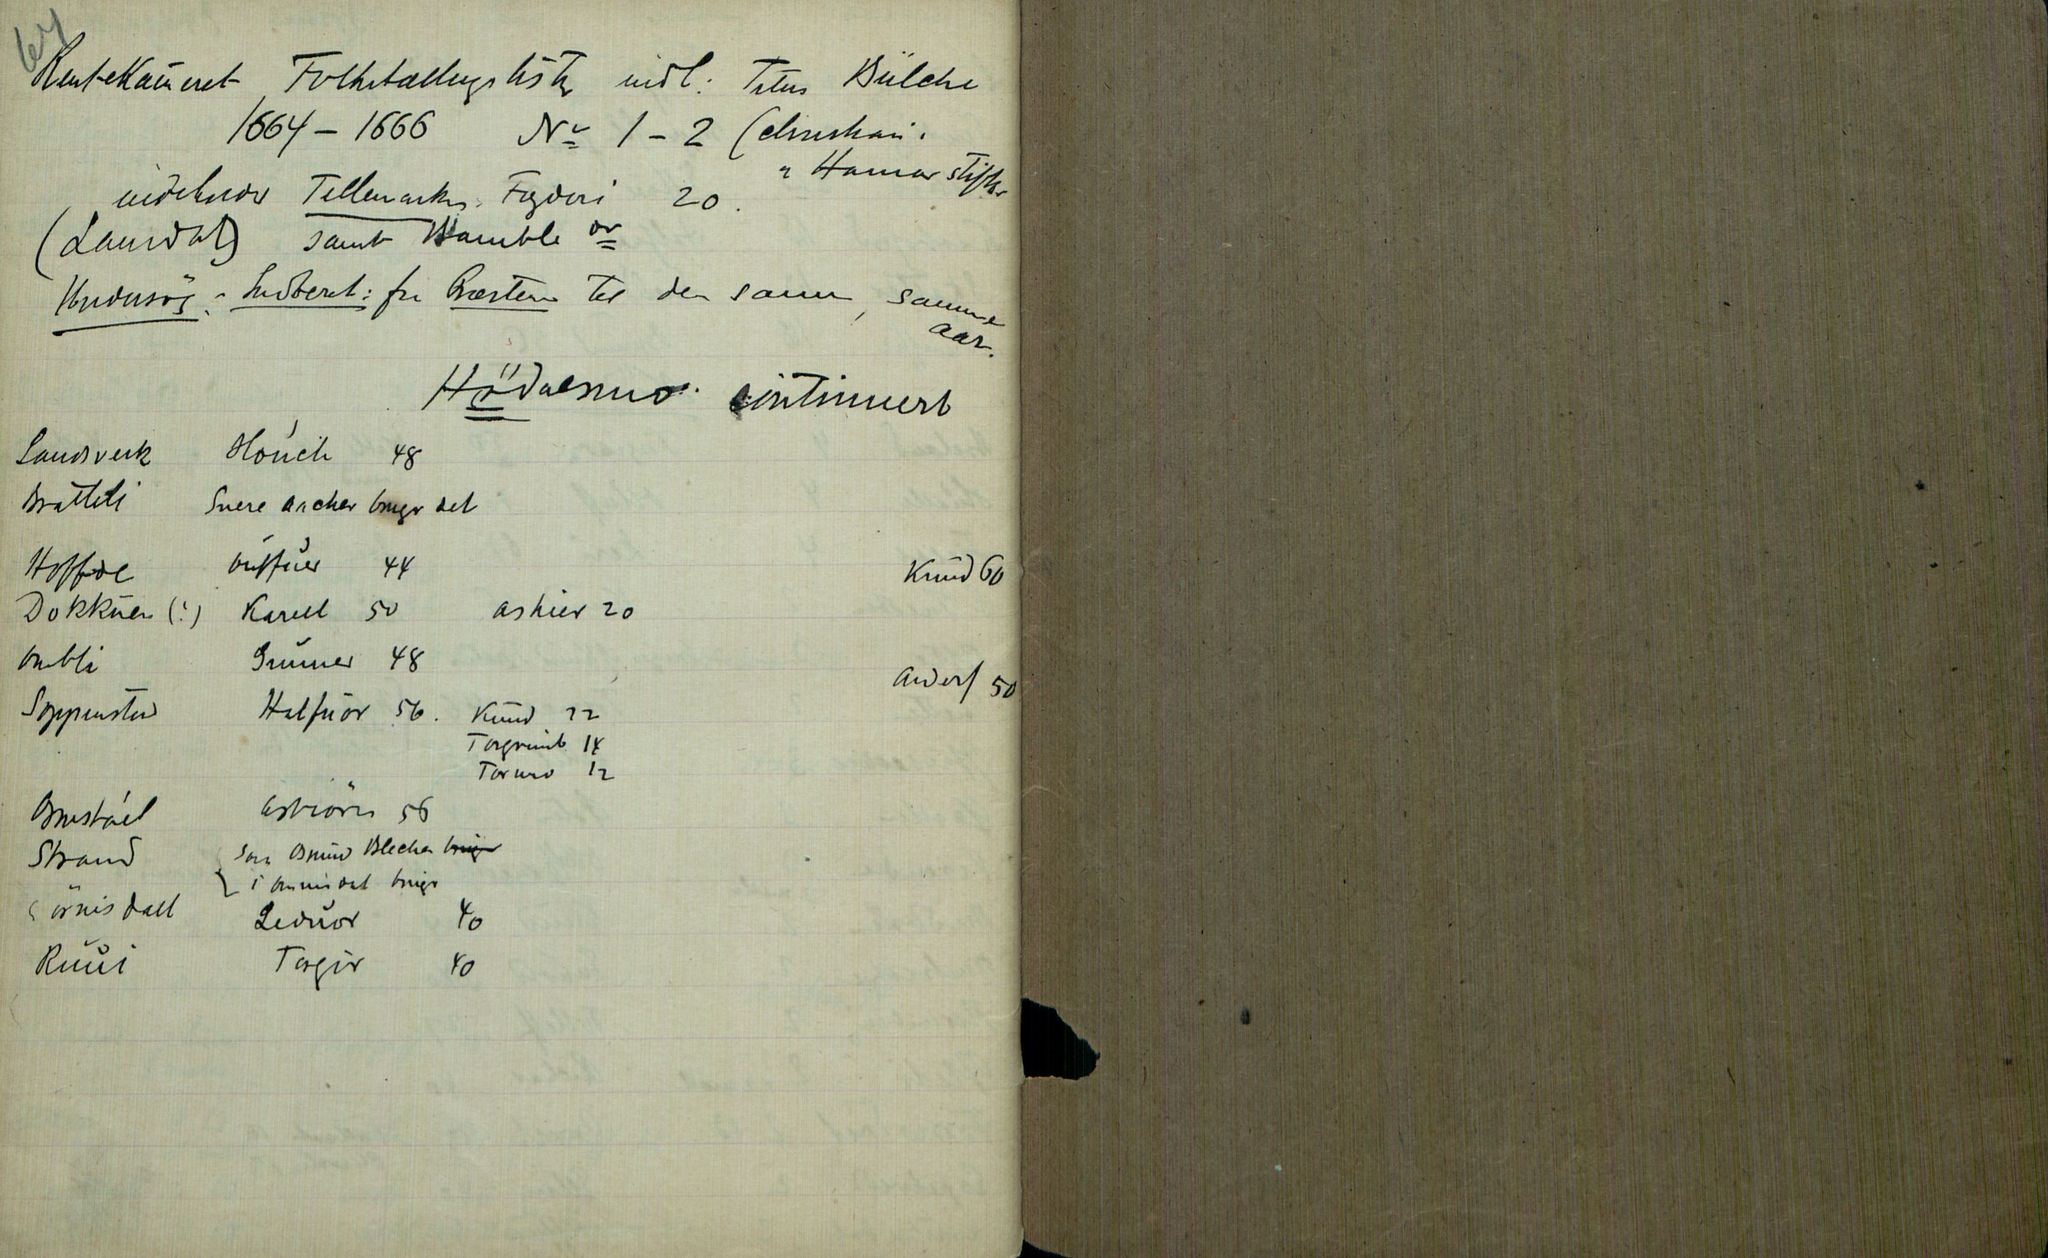 64
Rentekameret Folketællingsliste indl: Titus Bülche
1664 – 1666 No 1 – 2 (christiani.
" Hamar stifter
indeholder Tellemarkens Fogderi 20.
(Laurdal) samt Bamble
Undersög: Indberet: fra Præsterne til den samme, samme
aar.
Hödalsmo. continuert
Landsverk Hóuch 48
Bratteli Suere ancher bruger det
Hoffde 44 Knud 60
Dokkuen (?) Karell 50 askier 20
Ombli Gunner 48
Anders 50
Soppensted Halfuor 56. Knud 22
Torgrimb 14
Tormo 12
Asbiörn 56
Strand Som Osmund Blecher
i bruger
örnisdall Leduor 40
Ruui Torgir 40